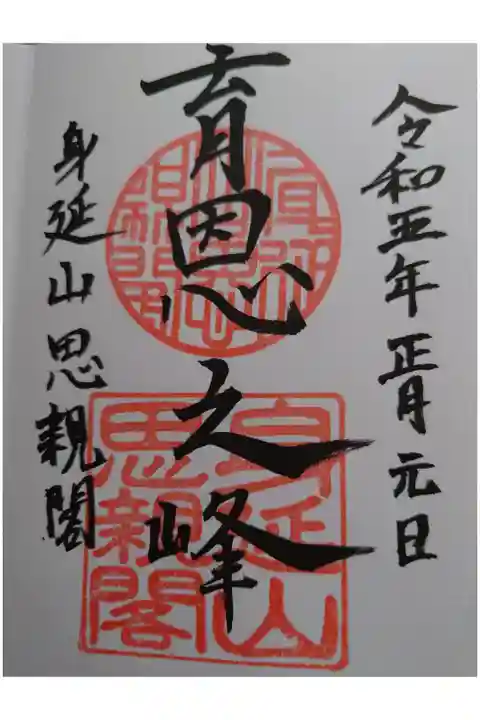 令和五年正月元日
育恩之峰
身延山思親閣
身延山思親閣